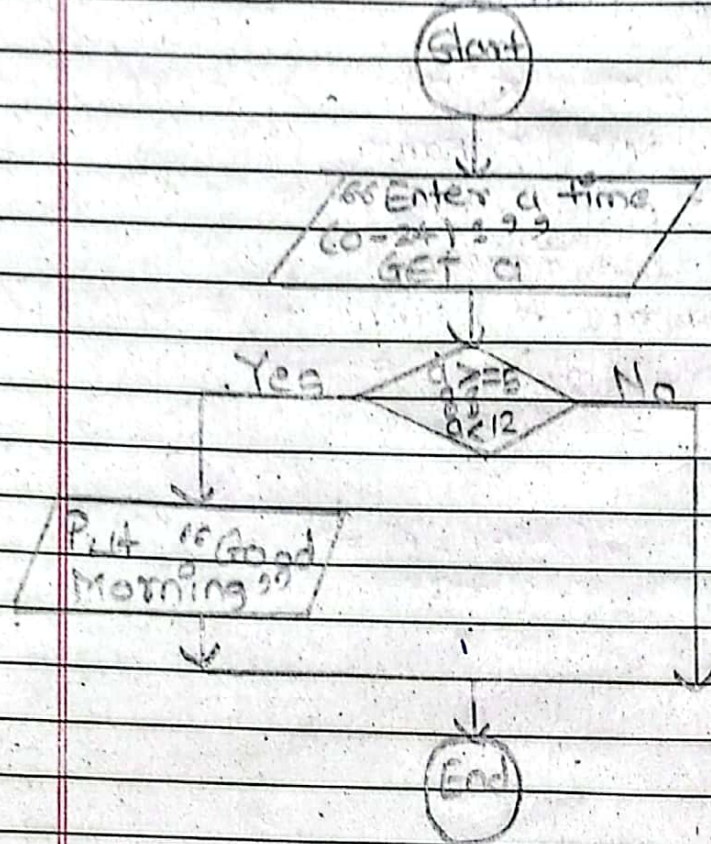 Start
"Enter a time
(0-24) : "
GET a
Yes
a >= 5
&&
a < 12
No
Put "Good
Morning"
End